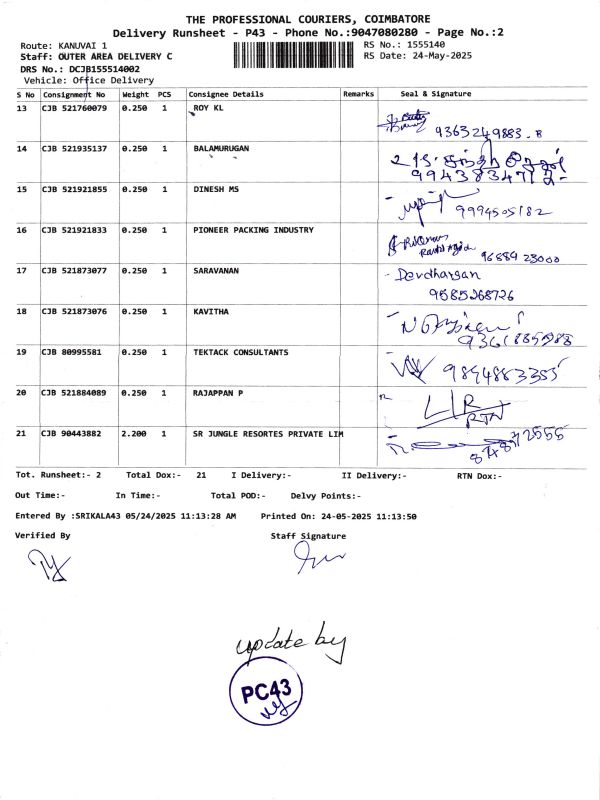 THE PROFESSIONAL COURIERS, COIMBATORE
Delivery Runsheet - P43 - Phone No.:9047080280 - Page No.:2
Route: KANUVAI 1
RS No.: 1555140
Staff: OUTER AREA DELIVERY C
RS Date: 24-May-2025
DRS No.: DCJB155514002
Vehicle: Office Delivery
S No Consignment No Weight PCS Consignee Details Remarks Seal & Signature
13 CJB 521760079 0.250 1 ROY KL
9363249883
14 CJB 521935137 0.250 1 BALAMURUGAN
9943834712
15 CJB 521921855 0.250 1 DINESH MS
9994505182
16 CJB 521921833 0.250 1 PIONEER PACKING INDUSTRY
9688923000
17 CJB 521873077 0.250 1 SARAVANAN Devdharsan
9585268726
18 CJB 521873076 0.250 1 KAVITHA
19 CJB 80995581 0.250 1 TEKTACK CONSULTANTS
9894883355
20 CJB 521884089 0.250 1 RAJAPPAN P
RTN
21 CJB 90443882 2.200 1 SR JUNGLE RESORTES PRIVATE LIM
Tot. Runsheet:- 2 Total Dox:- 21 I Delivery:- II Delivery:- RTN Dox:-
Out Time:- In Time:- Total POD:- Delvy Points:-
Entered By :SRIKALA43 05/24/2025 11:13:28 AM Printed On: 24-05-2025 11:13:50
Verified By Staff Signature
update by
PC43